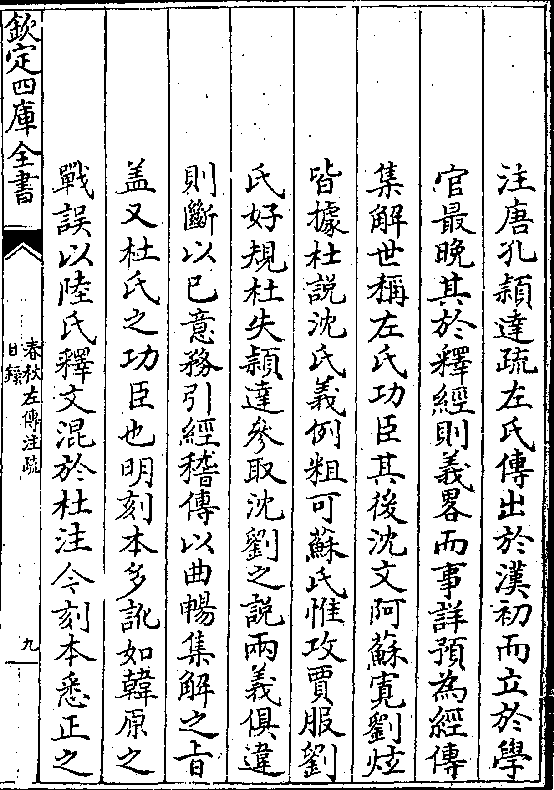 注唐孔穎達疏左氏傳出於漢初而立於學
官最晚其於釋經則義畧而事詳預為經傳
集解世稱左氏功臣其後沈文阿蘇寛劉炫
皆據杜說沈氏義例粗可蘇氏惟攻賈服劉
氏好規杜失穎達參取沈劉之說兩義俱違
則斷以已意務引經稽傳以曲暢集解之㫖
盖又杜氏之功臣也明刻本多訛如韓原之
戰誤以陸氏釋文混於杜注今刻本悉正之
欽定四庫全書
春秋左傳注疏
目錄
九